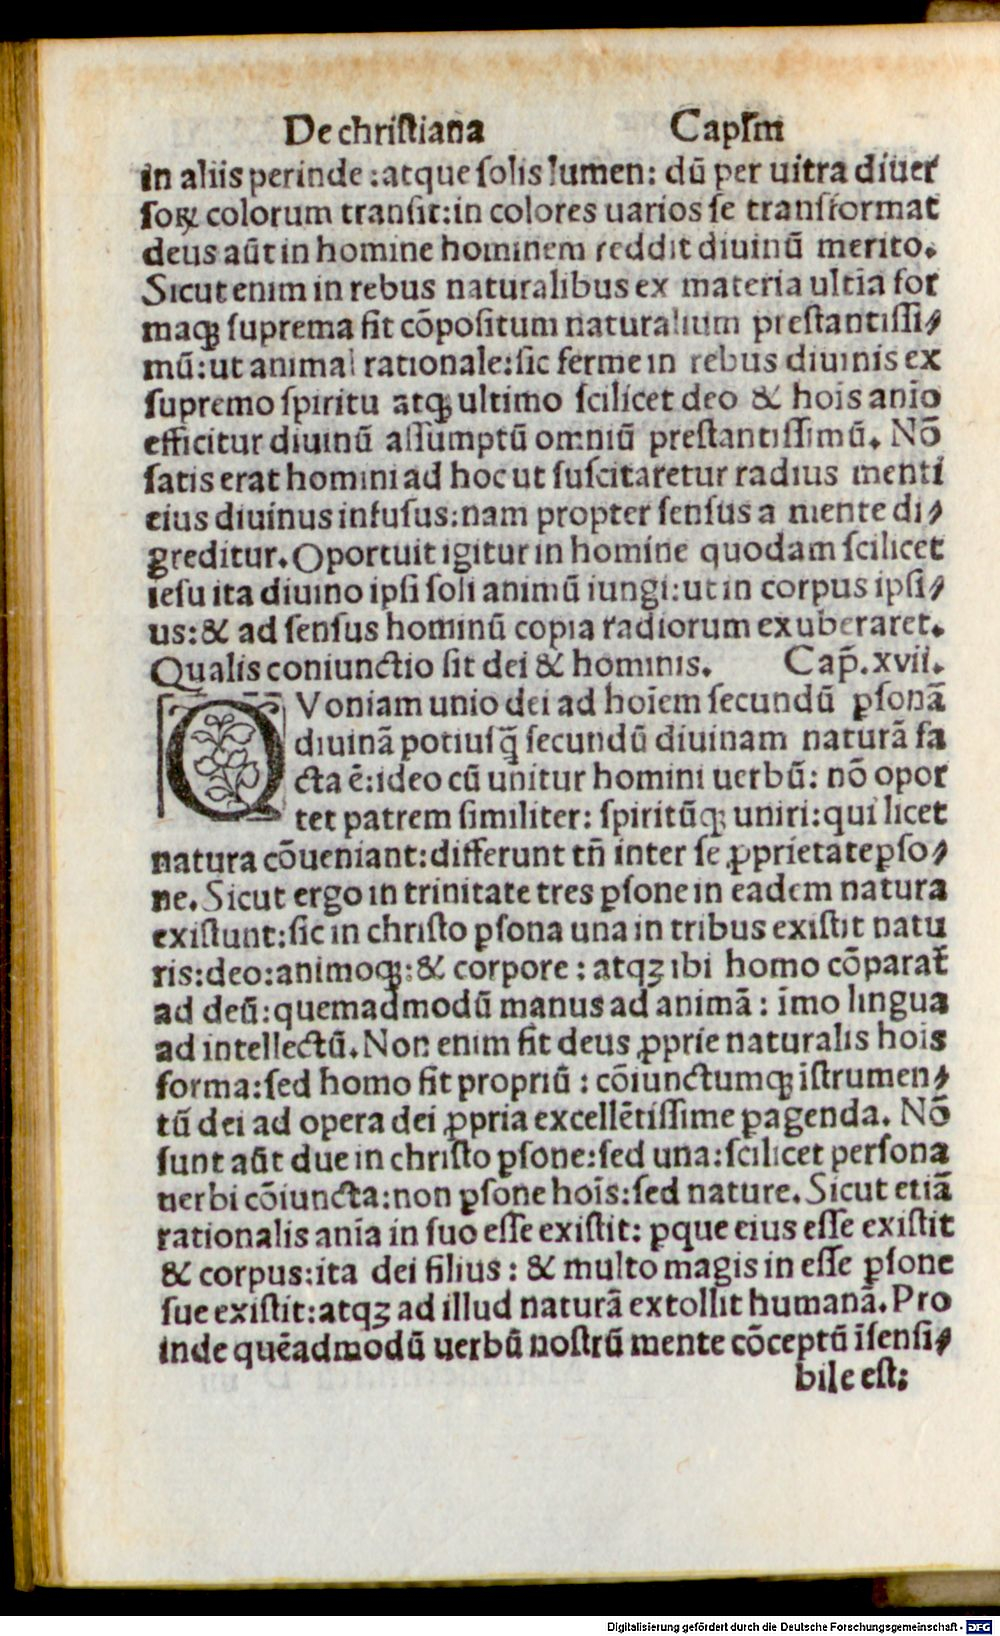 De christiana Capſm
in aliis perinde : atque ſolis lumen: dū per uitra diuer
ſoꝝ colorum tranſit: in colores uarios ſe tranſformat
deus aūt in homine hominem reddit diuinū merito.
Sicut enim in rebus naturalibus ex materia ultīa for
maqꝫ ſuprema fit cōpoſitum naturalium preſtantiſſi⸗
mū: ut animal rationale: ſic ferme in rebus diuinis ex
ſupremo ſpiritu atqꝫ ultimo ſcilicet deo & hoīs anīo
efficitur diuinū aſſumptū omniū preſtantiſſimū. Nō
ſatis erat homini ad hoc ut ſuſcitaretur radius menti
eius diuinus infuſus: nam propter ſenſus a mente di⸗
greditur. Oportuit igitur in homine quodam ſcilicet
ieſu ita diuino ipſi ſoli animū iungi: ut in corpus ipſi⸗
us: & ad ſenſus hominū copia radiorum exuberaret.
Qualis coniunctio ſit dei & hominis. Cap̄. xvii.
QVoniam unio dei ad hoīem ſecundū ꝑſonā
diuinā potiuſq̄ ſecundū diuinam naturā fa
cta ē: ideo cū unitur homini uerbū: nō opor
tet patrem ſimiliter: ſpiritūqꝫ uniri: qui licet
natura cōueniant: differunt tn̄ inter ſe ꝓprietate ꝑſo⸗
ne. Sicut ergo in trinitate tres ꝑſone in eadem natura
exiſtunt: ſic in chriſto ꝑſona una in tribus exiſtit natu
ris: deo: animoqꝫ: & corpore : atqꝫ ibi homo cōparat̄
ad deū: quemadmodū manus ad animā : īmo lingua
ad intellectū. Non enim fit deus ꝓprie naturalis hoīs
forma: ſed homo fit propriū : cōiunctumqꝫ īſtrumen⸗
tū dei ad opera dei ꝓpria excellētiſſime ꝑagenda. Nō
ſunt aūt due in chriſto ꝑſone: ſed una: ſcilicet perſona
uerbi cōiuncta: non ꝑſone hoīs: ſed nature. Sicut etiā
rationalis anīa in ſuo eſſe exiſtit: ꝑque eius eſſe exiſtit
& corpus: ita dei filius : & multo magis in eſſe ꝑſone
ſue exiſtit: atqꝫ ad illud naturā extollit humanā. Pro
inde quēadmodū uerbū noſtrū mente cōceptū īſenſi⸗
bile eſt:
Digitalisierung gefördert durch die Deutsche Forschungsgemeinschaft - DFG